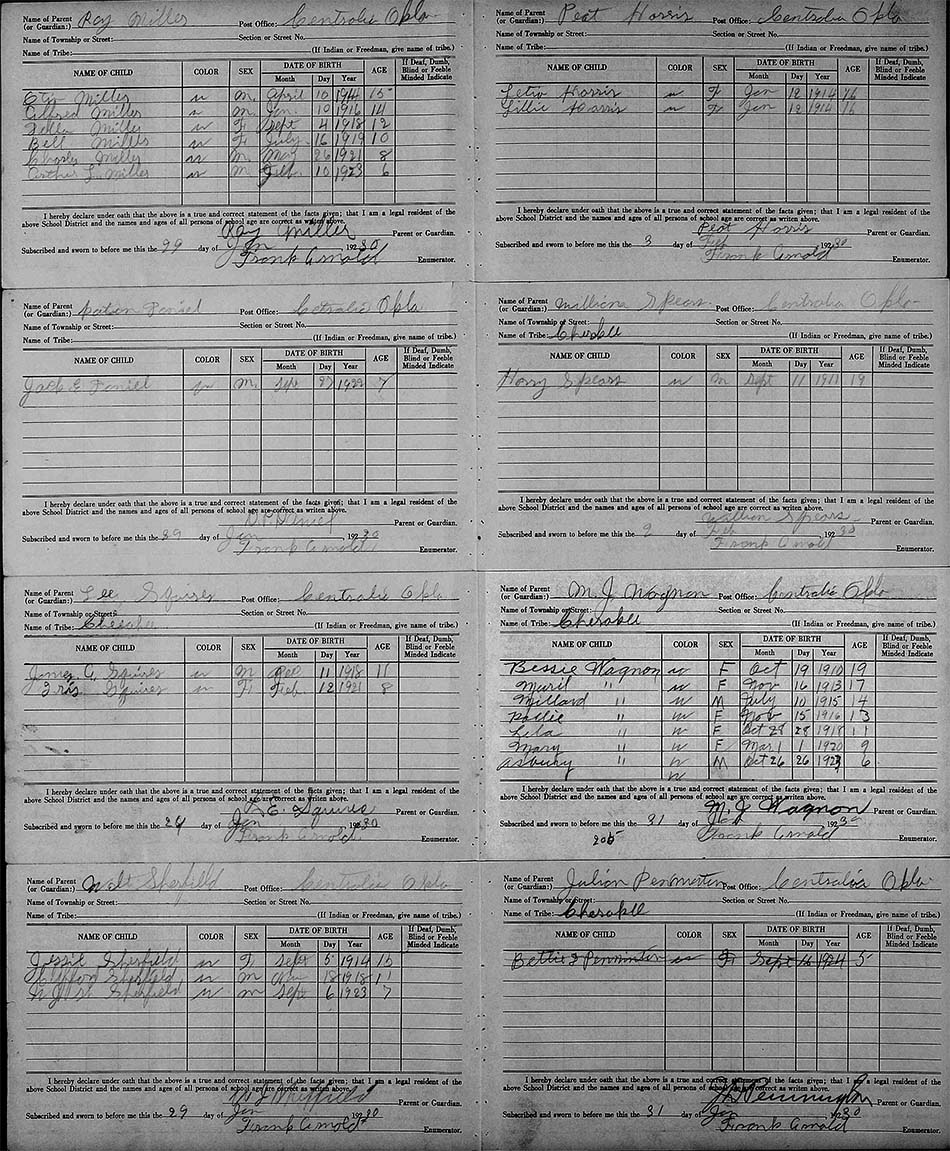 Name of Parent (or Guardian:) Ray Miller Post Office: Centralia Okla
Name of Township or Street: Section or Street No.
Name of Tribe: (If Indian or Freedman, give name of tribe.)
NAME OF CHILD COLOR SEX DATE OF BIRTH Month Day Year AGE If Deaf, Dumb, Blind or Feeble Minded Indicate
Miller w M. April 10 1914 15
Alfred Miller M. 10 1916 14
Miller w F Sept 4 1918 12
Bell Miller w F July 16 1919 10
Charley Miller w M. May 26 1921 8
Arthur L. Miller w M Feb. 10 1923 6
I hereby declare under oath that the above is a true and correct statement of the facts given; that I am a legal resident of the
above School District and the names and ages of all persons of school age are correct as writen above.
Ray Miller Parent or Guardian.
Subscribed and sworn to before me this the 29 day of Jan, 1930
Frank Arnold Enumerator.
Name of Parent (or Guardian:) Peat Harris Post Office: Centralia Okla
Name of Township or Street: Section or Street No.
Name of Tribe: (If Indian or Freedman, give name of tribe.)
NAME OF CHILD COLOR SEX DATE OF BIRTH Month Day Year AGE If Deaf, Dumb, Blind or Feeble Minded Indicate
Harris w F Jan 12 1914 16
Lillie Harris w F Jan 12 1914 16
I hereby declare under oath that the above is a true and correct statement of the facts given; that I am a legal resident of the
above School District and the names and ages of all persons of school age are correct as writen above.
Peat Harris Parent or Guardian.
Subscribed and sworn to before me this the 3 day of Feb, 1930
Frank Arnold Enumerator.
Name of Parent (or Guardian:) Post Office: Cetralia Okla
Name of Township or Street: Section or Street No.
Name of Tribe: (If Indian or Freedman, give name of tribe.)
NAME OF CHILD COLOR SEX DATE OF BIRTH Month Day Year AGE If Deaf, Dumb, Blind or Feeble Minded Indicate
Jack E. w M. Sept 1922 7
I hereby declare under oath that the above is a true and correct statement of the facts given; that I am a legal resident of the
above School District and the names and ages of all persons of school age are correct as writen above.
Parent or Guardian.
Subscribed and sworn to before me this the 29 day of Jan, 1930
Frank Arnold Enumerator.
Name of Parent (or Guardian:) Spears Post Office: Centralia Okla
Name of Township or Street: Section or Street No.
Name of Tribe: (If Indian or Freedman, give name of tribe.)
NAME OF CHILD COLOR SEX DATE OF BIRTH Month Day Year AGE If Deaf, Dumb, Blind or Feeble Minded Indicate
Harry Spears w M Sept 11 19
I hereby declare under oath that the above is a true and correct statement of the facts given; that I am a legal resident of the
above School District and the names and ages of all persons of school age are correct as writen above.
Spears Parent or Guardian.
Subscribed and sworn to before me this the day of Feb, 1930
Frank Arnold Enumerator.
Name of Parent (or Guardian:) Lee Squires Post Office: Centralia Okla
Name of Township or Street: Section or Street No.
Name of Tribe: (If Indian or Freedman, give name of tribe.)
NAME OF CHILD COLOR SEX DATE OF BIRTH Month Day Year AGE If Deaf, Dumb, Blind or Feeble Minded Indicate
James C. Squires w M Dec 11 1918 11
Iris Squires w F Feb 12 1921 8
I hereby declare under oath that the above is a true and correct statement of the facts given; that I am a legal resident of the
above School District and the names and ages of all persons of school age are correct as writen above.
Squires Parent or Guardian.
Subscribed and sworn to before me this the day of Jan, 1930
Frank Arnold Enumerator.
Name of Parent (or Guardian:) M. J. Wagnon Post Office: Centralia Okla
Name of Township or Street: Section or Street No.
Name of Tribe: (If Indian or Freedman, give name of tribe.)
NAME OF CHILD COLOR SEX DATE OF BIRTH Month Day Year AGE If Deaf, Dumb, Blind or Feeble Minded Indicate
Bessie Wagnon w F Oct 19 1910 19
Muril " w F Nov 16 1913 17
Millard " w M July 10 1915 14
Pollie " w F Nov 15 1916 13
Lela " w F Oct 28 28 1918 11
Mary " w F Mar 1 1 1920 9
Asbury " w M Oct 26 26 1923 6
w
I hereby declare under oath that the above is a true and correct statement of the facts given; that I am a legal resident of the
above School District and the names and ages of all persons of school age are correct as writen above.
M. J. Wagnon Parent or Guardian.
Subscribed and sworn to before me this the 31 day of Jan, 1930
Frank Arnold Enumerator.
Name of Parent (or Guardian:) Walt Sherfield Post Office: Centralia Okla
Name of Township or Street: Section or Street No.
Name of Tribe: (If Indian or Freedman, give name of tribe.)
NAME OF CHILD COLOR SEX DATE OF BIRTH Month Day Year AGE If Deaf, Dumb, Blind or Feeble Minded Indicate
Jessie Sherfield w F Sept 5 1914 15
Clifford Sherfield w M 18 1918 11
Sherfield w M Sept 6 1923 7
I hereby declare under oath that the above is a true and correct statement of the facts given; that I am a legal resident of the
above School District and the names and ages of all persons of school age are correct as writen above.
W J Sheffield Parent or Guardian.
Subscribed and sworn to before me this the 29 day of Jan, 1930
Frank Arnold Enumerator.
Name of Parent (or Guardian:) Julian Post Office: Centralia Okla
Name of Township or Street: Section or Street No.
Name of Tribe: (If Indian or Freedman, give name of tribe.)
NAME OF CHILD COLOR SEX DATE OF BIRTH Month Day Year AGE If Deaf, Dumb, Blind or Feeble Minded Indicate
Bettie w F Sept 16 1924 5
I hereby declare under oath that the above is a true and correct statement of the facts given; that I am a legal resident of the
above School District and the names and ages of all persons of school age are correct as writen above.
Parent or Guardian.
Subscribed and sworn to before me this the 31 day of Jan, 1930
Frank Arnold Enumerator.